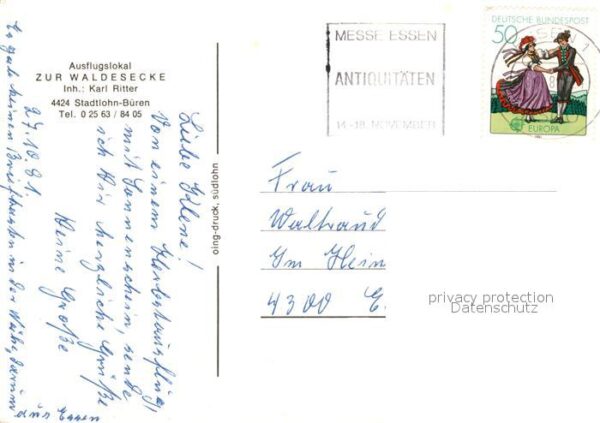 Ausflugslokal
ZUR WALDESECKE
Inh.: Karl Ritter
4424 Stadtlohn-Büren
Tel. 0 25 63 / 84 05
MESSE ESSEN
ANTIQUITÄTEN
14.-18. NOVEMBER
DEUTSCHE BUNDESPOST
50
EUROPA
oing-druck, südlohn
27.10.81.
Liebe
Von einem Herbstausflug,
mit Sonnenschein, sende
ich Dir herzliche Grüße
Deine Große
Es gab keinen Briefkasten in der Nähe, darum
aus Essen
Frau
Waltraud
Im Hein
4300 E.
privacy protection
Datenschutz